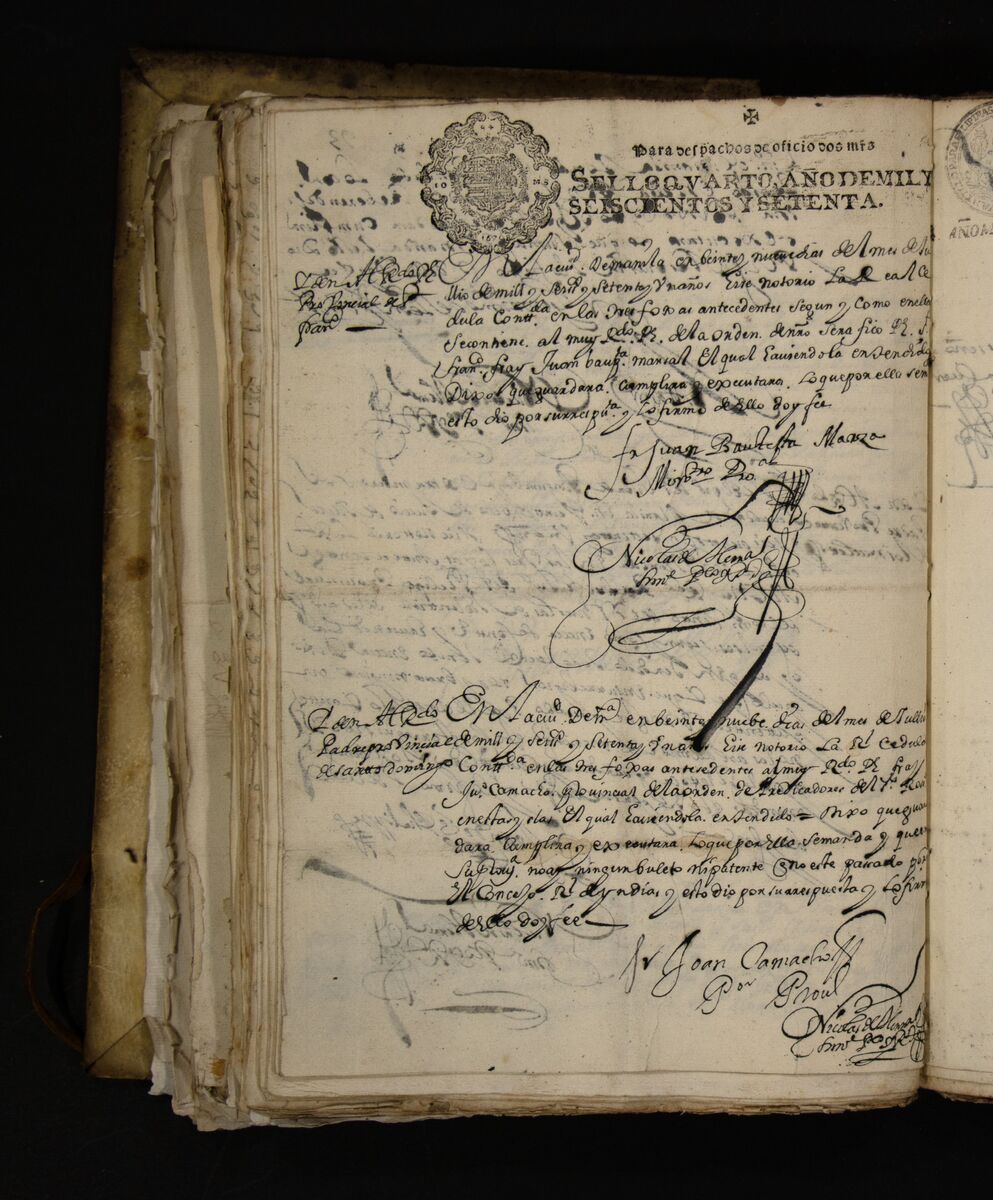 ✠
Para despachos de oficio dos mrs
SELLO QVARTO, AÑO DE MIL Y
SEISCIENTOS Y SETENTA.
Yden Al Rdo P.
Provincial de S.
Franco
En la ciud. De manila en beinte y nueve dias del mes de Ju
llio de mill y seisos y setenta y Un años Hise notorio La Real Ce
dula Conttda en las tres foxas antecedentes segun y Como en ella
se contiene al muy Rdo P. de la orden de nro serafico P. S.
Franco fray Juan bauptta marsal El qual haviendola entendido
Dixo que guardara Cumplira y executara Lo que por ella
esto dio por su resputa y lo firmo de Ello doy fee
fr Juan Bautista Marza
Minro Proal
Nicolas de Herra
Yden Al Rdo
Padre provincial
de santo domingo
En la ciud De mla en beinte y nuebe dias del mes de Jullio
de mill y seisos y setenta y Un años Hise notorio La Rl Cedula
Conttda en las tres foxas antesedentes al muy Rdo P. fray
Juo Camacho provincial de la orden de Predicadores del
en estas yslas El qual haviendola entendido = Dixo que guar
dara Cumplira y executara Lo que por Ella se manda y que en
su provia no ay ningun buleto ni patente que no este pasado por
el Concejo Rl de yndias y esto dio por su respuesta y Lo firmo
de Ello doy fee
fr Joan Camacho
Por Proul
Nicolas de Herra